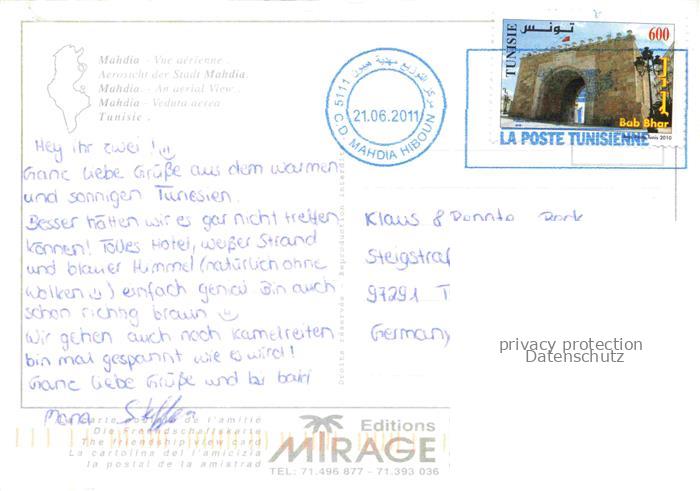 Mahdia - Vue aérienne.
Aerosicht der Stadt Mahdia.
Mahdia. - An aerial View.
Mahdia - Veduta aerea
Tunisie.
Hey ihr zwei!
Ganz liebe Grüße aus dem warmen
und sonnigen Tunesien.
Besser hätten wir es gar nicht treffen
können! Tolles Hotel, weißer Strand
und blauer Himmel (natürlich ohne
Wolken) einfach genial. Bin auch
schon richtig braun
Wir gehen auch noch Kamelreiten
bin mal gespannt wie es wird!
Ganz liebe Grüße und bis bald
Steffen
5111 مركز التوزيع مهدية هيبون
21.06.2011
C.D. MAHDIA HIBOUN
TUNISIE
تونس
600
بريد
Bab Bhar
Tunis 2010
LA POSTE TUNISIENNE
Klaus &
Steigstraß
97291 T
Germany
privacy protection
Datenschutz
Droits réservés - Reproduction interdite
La carte postale de l'amitié
Die Freundschaftskarte
The friendship view card
La cartolina dell'amicizia
la postal de la amistad
Editions
MIRAGE
TEL: 71.496 877 - 71.393 036